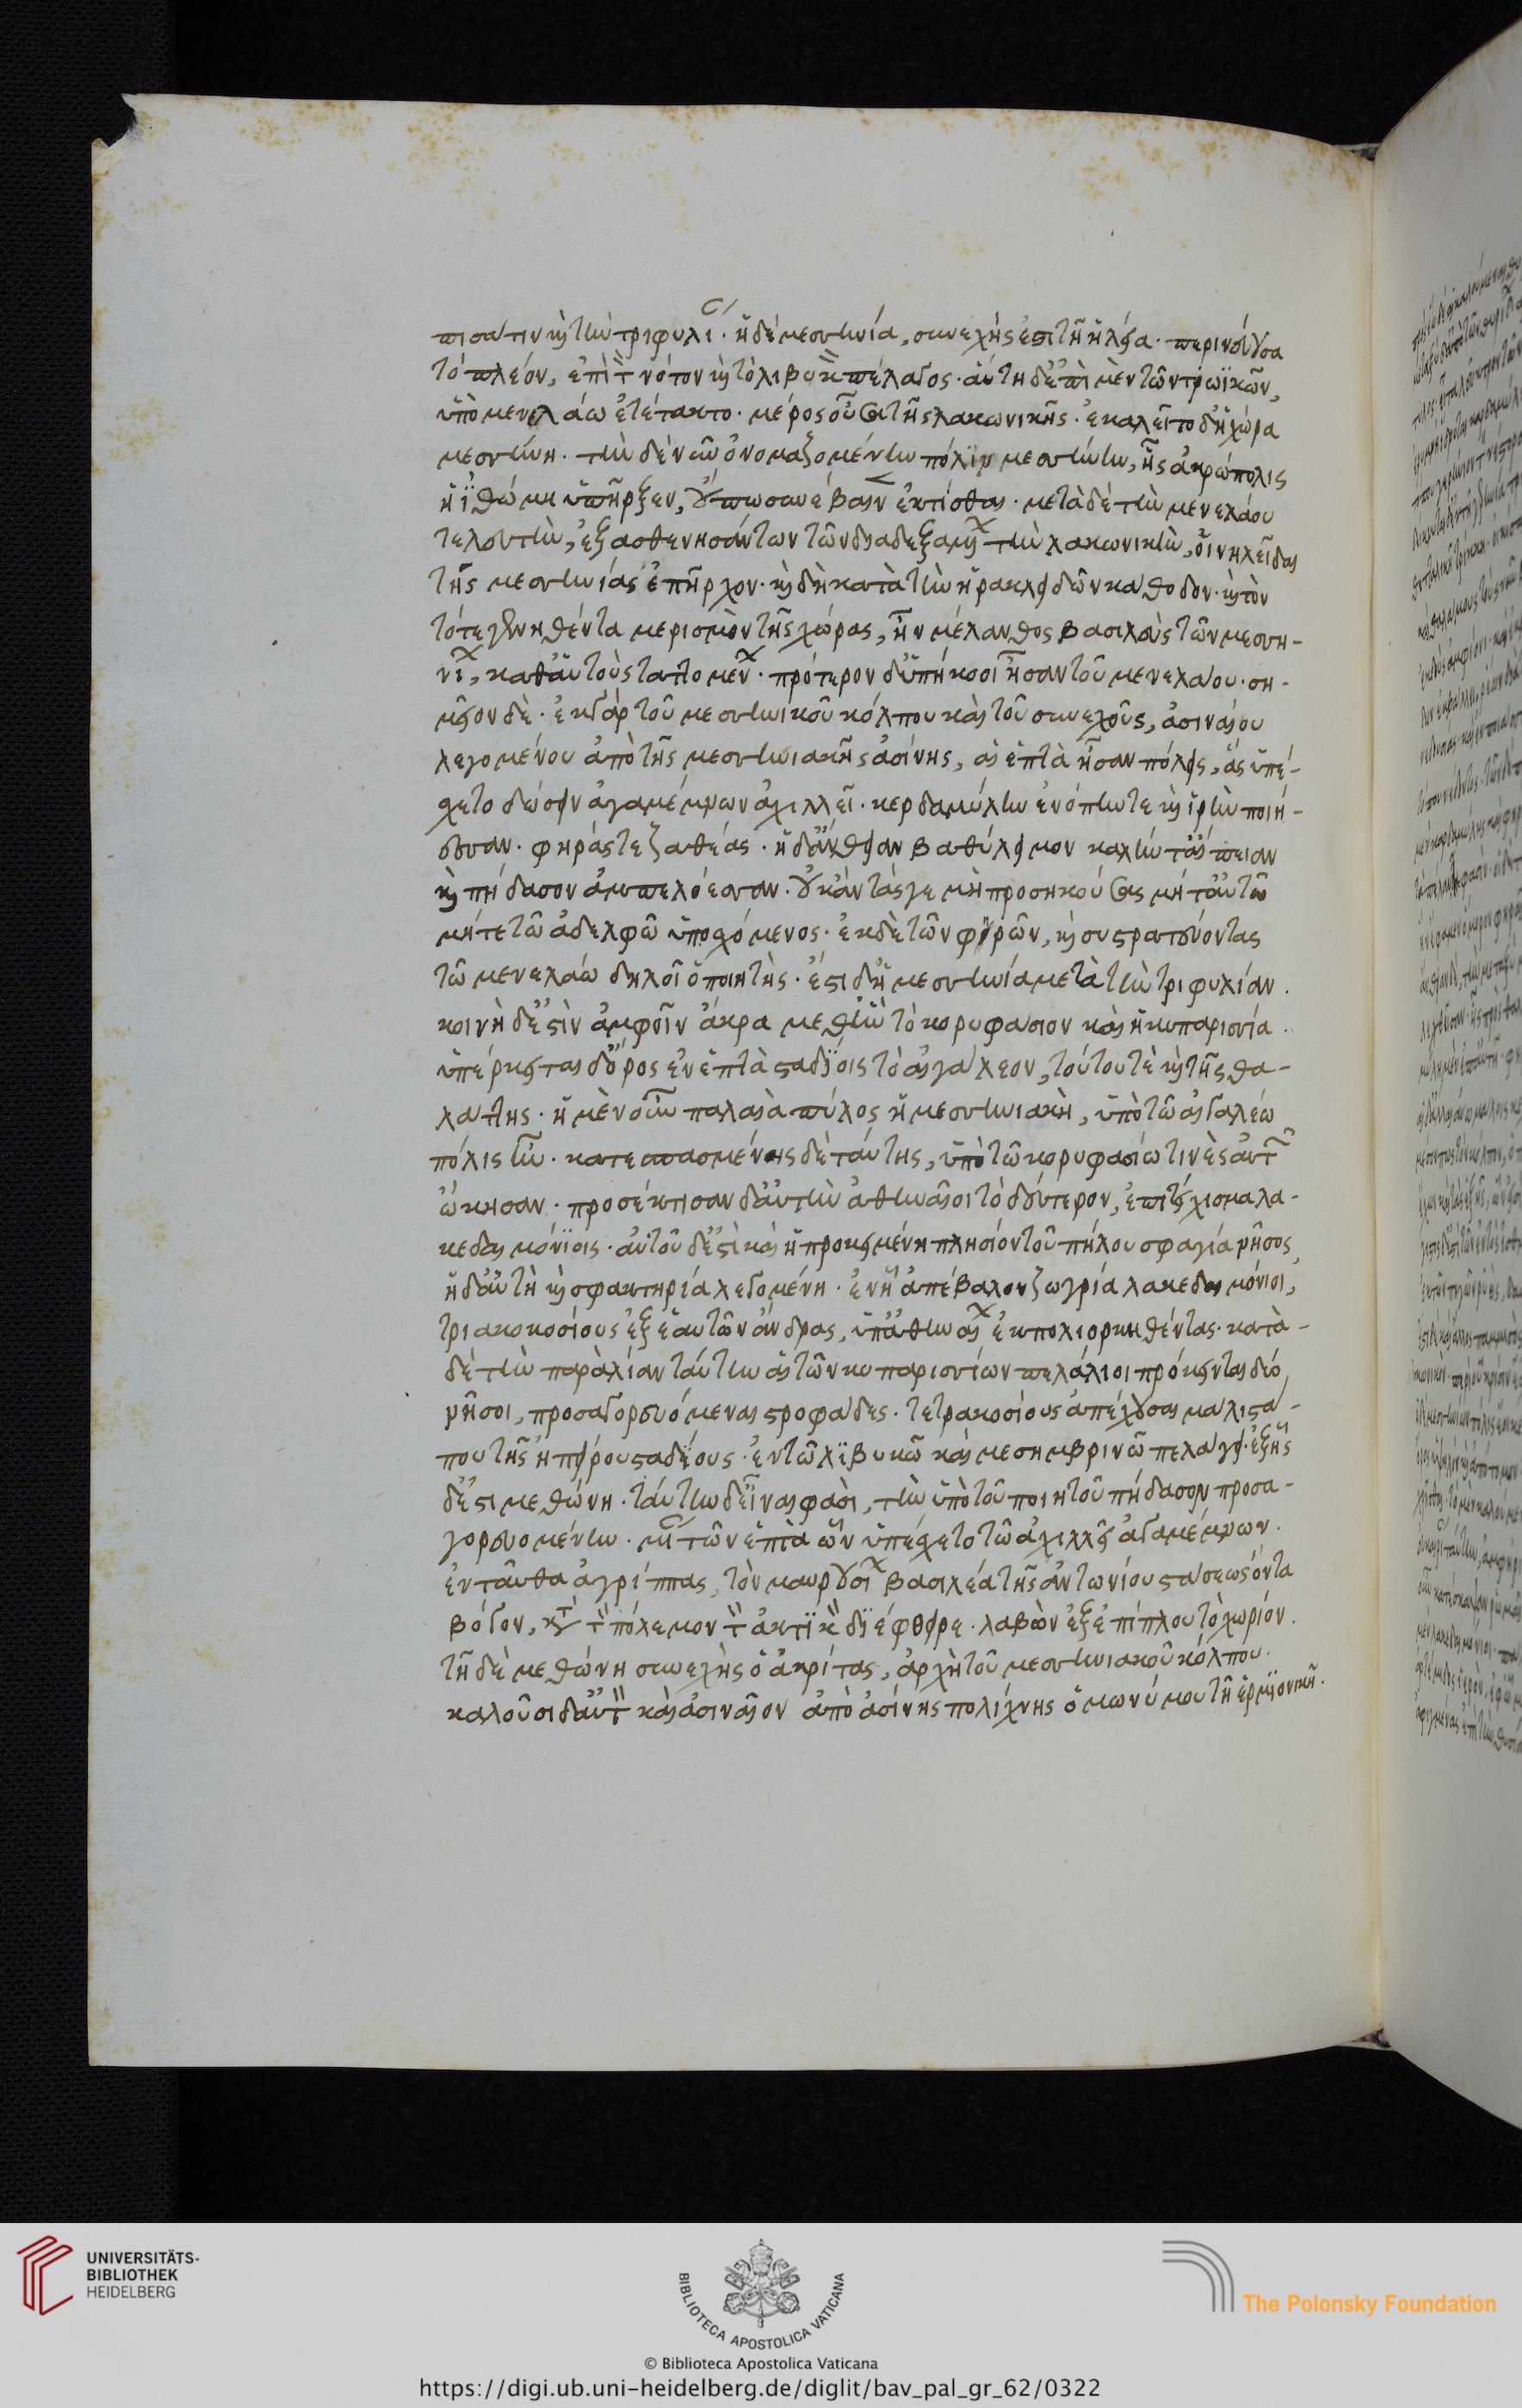 πισάτιν καὶ τὴν τριφυλί. ἡ δὲ μεσσηνία, συνεχής ἐστι τῇ ἠλεία. περινεύουσα
τὸ πλέον, ἐπὶ τὸν νότον καὶ τὸ λιβυκὸν πέλαγος. αὕτη δ' ἐπὶ μὲν τῶν τρωϊκῶν,
ὑπὸ μενελάω ἐτέτακτο. μέρος οὖσα τῆς λακωνικῆς. ἐκαλεῖτο δ' ἡ χώρα
μεσσήνη. τὴν δὲ νῦν ὀνομαζομένην πόλιν μεσσήνην, ἧς ἀκρόπολις
ἡ ἰθώμη ὑπῆρξεν, οὔπω συνέβαινεν ἐκτίσθαι. μετὰ δὲ τὴν μενελάου
τελευτὴν, ἐξασθενησάντων τῶν διαδεξαμένων τὴν λακωνικὴν, οἱ νηλεῖδαι
τῆς μεσσηνίας ἐπῆρχον. καὶ δὴ κατὰ τὴν ἡρακλειδῶν κάθοδον. καὶ τὸν
τότε γενηθέντα μερισμὸν τῆς χώρας, ἦν μέλανθος βασιλεὺς τῶν μεσση-
νίων, καθ' αὑτοὺς ταττομένων. πρότερον δ' ὑπήκοοι ἦσαν τοῦ μενελάου. ση-
μεῖον δὲ. ἐκ γὰρ τοῦ μεσσηνικοῦ κόλπου καὶ τοῦ συνεχοῦς, ἀσιναίου
λεγομένου ἀπὸ τῆς μεσσηνιακῆς ἀσίνης, αἱ ἑπτὰ ἦσαν πόλεις, ἃς ὑπέ-
σχετο δώσειν ἀγαμέμνων ἀχιλλεῖ. κερδαμύλην ἐνόπην τε καὶ ἱρὴν ποιή-
εσσαν. φηράς τε ζαθέας. ἠδ' ἄνθειαν βαθύλειμον καλήν τ' αἴπειαν
καὶ πήδασον ἀμπελόεσσαν. οὐκ ἂν τάς γε μὴ προσηκούσας μήτ' αὐτῶ
μήτε τῶ ἀδελφῶ ὑποσχόμενος. ἐκ δὲ τῶν φηρῶν, καὶ συστρατεύοντας
τῶ μενελάω δηλοῖ ὁ ποιητής. ἔστι δ' ἡ μεσσηνία μετὰ τὴν τριφυλίαν.
κοινὴ δ' ἐστὶν ἀμφοῖν ἄκρα μεθ' ἣν τὸ κορυφάσιον καὶ ἡ κυπαρισσία.
ὑπέρκειται δ' ὄρος ἐν ἑπτὰ σταδίοις τὸ αἰγάλεον, τούτου τὲ καὶ τῆς θα-
λάττης. ἡ μὲν οὖν παλαιὰ πύλος ἡ μεσσηνιακὴ, ὑπὸ τῶ αἰγαλέω
πόλις ἦν. κατεσπασμένης δὲ ταύτης, ὑπὸ τῶ κορυφασίω τινὲς αὐτῶν
ὤκησαν. προσέκτισαν δ' αὐτὴν ἀθηναῖοι τὸ δεύτερον, ἐπιτείχισμα λα-
κεδαιμονίοις. αὐτοῦ δ' ἐστὶ καὶ ἡ προκειμένη πλησίον τοῦ πήλου σφαγία νῆσος,
ἡ δ' αὐτὴ καὶ σφακτηρία λεγομένη. ἐν ᾗ ἀπέβαλον ζωγρία λακεδαιμόνιοι,
τριακοκοσίους ἐξ ἑαυτῶν ἄνδρας, ὑπ' ἀθηναίων ἐκπολιορκηθέντας. κατὰ-
δὲ τὴν παραλίαν ταύτην αἱ τῶν κυπαρισσίων πελάγιοι πρόκεινται δύο
νῆσοι, προσαγορευόμεναι στροφάδες. τετρακοσίους ἀπέχουσαι μάλιστα-
που τῆς ἠπείρου σταδίους. ἐν τῶ λιβυκῶ καὶ μεσημβρινῶ πελάγει. ἑξῆς
δ' ἐστι μεθώνη. ταύτην δ' εἶναι φασὶ, τὴν ὑπὸ τοῦ ποιητοῦ πήδασον προσα-
γορευομένην. μίαν τῶν ἑπτὰ ὧν ὑπέσχετο τῶ ἀχιλλεῖ ἀγαμέμνων.
ἐνταῦθα ἀγρίππας, τὸν μαυρουσίων βασιλέα τῆς ἀντωνίου στάσεως ὄντα
βόγον, κατὰ τὸν πόλεμον τὸν ἀκτιακὸν διέφθειρε. λαβὼν ἐξ ἐπίπλου τὸ χωρίον.
τῇ δὲ μεθώνη συνεχὴς ὁ ἀκρίτας, ἀρχὴ τοῦ μεσσηνιακοῦ κόλπου.
καλοῦσι δ' αὐτὸν καὶ ἀσιναῖον ἀπὸ ἀσίνης πολίχνης ὁμωνύμου τῇ ἑρμιονικῇ.
UNIVERSITÄTS-
BIBLIOTHEK
HEIDELBERG
BIBLIOTECA APOSTOLICA VATICANA
© Biblioteca Apostolica Vaticana
The Polonsky Foundation
https://digi.ub.uni-heidelberg.de/diglit/bav_pal_gr_62/0322